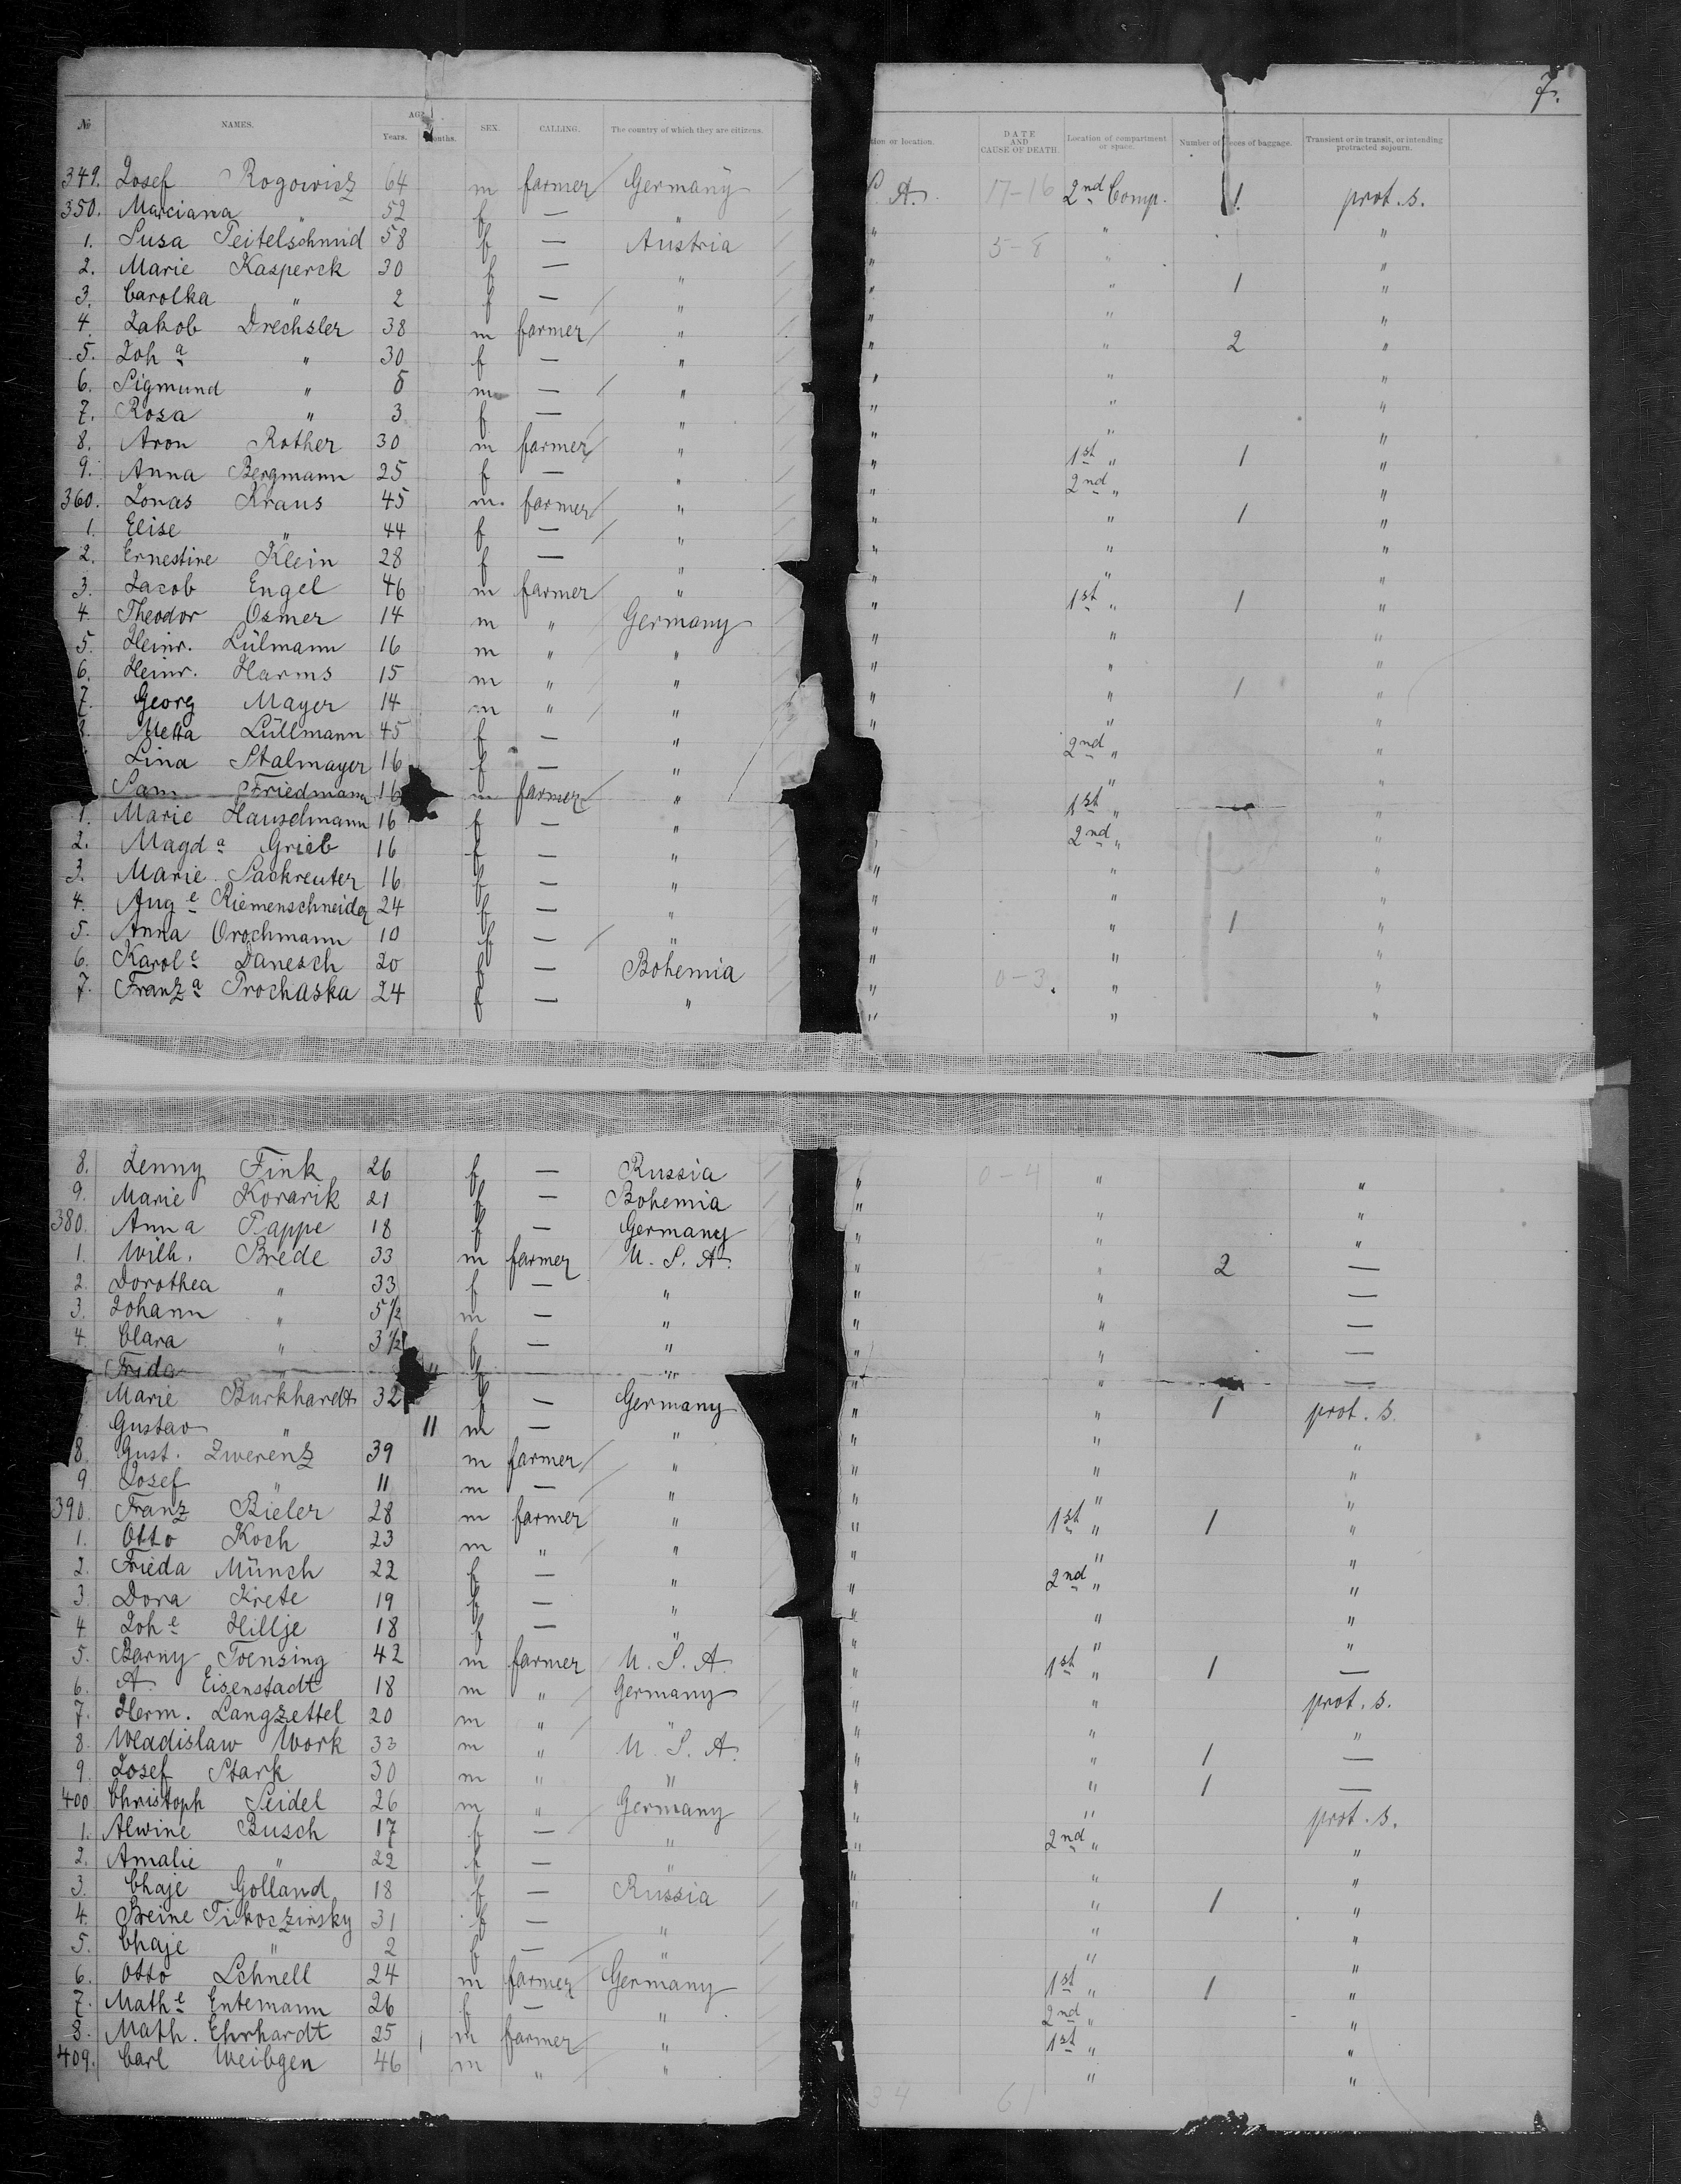 7.
№ NAMES. AGE. Years. Months. SEX. CALLING. The country of which they are citizens. tion or location. DATE AND CAUSE OF DEATH. Location of compartment or space. Number of pieces of baggage. Transient or in transit, or intending protracted sojourn.
349. Josef Rogowicz 64 m farmer Germany S. A. 17-16 2nd Comp. 1 prot. s.
350. Marciana " 52 f — " " " "
1. Susa Teitelschmid 58 f — Austria " 5-8 " "
2. Marie Kasperck 30 f — " " " 1 "
3. Carolka " 2 f — " " " "
4. Jakob Drechsler 38 m farmer " " " 2 "
5. Joh a " 30 f — " " " "
6. Sigmund " 5 m — " " " "
7. Rosa " 3 f — " " " "
8. Aron Rother 30 m farmer " " 1st " 1 "
9. Anna Bergmann 25 f — " " 2nd " "
360. Jonas Kraus 45 m. farmer " " " 1 "
1. Elise " 44 f — " " " "
2. Ernestine Klein 28 f — " " " "
3. Jacob Engel 46 m farmer " " 1st " 1 "
4. Theodor Osmer 14 m " Germany " " "
5. Heinr. Lülmann 16 m " " " " "
6. Heinr. Harms 15 m " " " " 1 "
7. Georg Mayer 14 m " " " " "
Metta Lüllmann 45 f — " 2nd " "
Lina Stalmayer 16 f — " " "
Sam Friedmann 16 m farmer " 1st " "
1. Marie Hauselmann 16 f — " 2nd " "
2. Magd a Grieb 16 f — " " " "
3. Marie Sackreuter 16 f — " " " "
4. Aug e Riemenschneider 24 f — " " " 1 "
5. Anna Orochmann 10 f — " " " "
6. Karol e Danesch 20 f — Bohemia " 0-3. " "
7. Franz a Prochaska 24 f — " " " "
8. Jenny Fink 26 f — Russia " 0-4 " "
9. Marie Korarik 21 f — Bohemia " " "
380. Anna Pappe 18 f — Germany " " "
1. Wilh. Brede 33 m farmer U. S. A. " " 2 —
2. Dorothea " 33 f — " " " —
3. Johann " 5 1/2 m — " " " —
4. Clara " 3 1/2 f — " " " —
Frida " 11 f — " " " —
Marie Burkhardt 32 f — Germany " " 1 prot. s.
Gustav " 11 m — " " " "
8. Gust. Zwerenz 39 m farmer " " " "
9 Josef " 11 m — " " " "
390. Franz Bieler 28 m farmer " " 1st " 1 "
1. Otto Koch 23 m " " " " "
2. Frieda Münch 22 f — " " 2nd " "
3. Dora Krete 19 f — " " " "
4 Joh e Hillje 18 f — " " " "
5. Barny Toensing 42 m farmer U. S. A. " 1st " 1 —
6. A. Eisenstadt 18 m " Germany " " prot. s.
7. Herm. Langzettel 20 m " " " " "
8. Wladislaw Work 33 m " U. S. A. " " 1 —
9. Josef Stark 30 m " " " " 1 —
400 Christoph Seidel 26 m " Germany " " prot. s.
1. Alwine Busch 17 f — " " 2nd " "
2. Amalie " 22 f — " " " "
3. Chaje Golland 18 f — Russia " " 1 "
4. Breine Tikoczinsky 31 f — " " "
5. Chaje " 2 f — " " "
6. Otto Schnell 24 m farmer Germany 1st " 1 "
7. Math e Entemann 26 f — " 2nd " "
8. Math. Ehrhardt 25 m farmer " 1st " "
409. Carl Weibgen 46 m " " " "
34 61